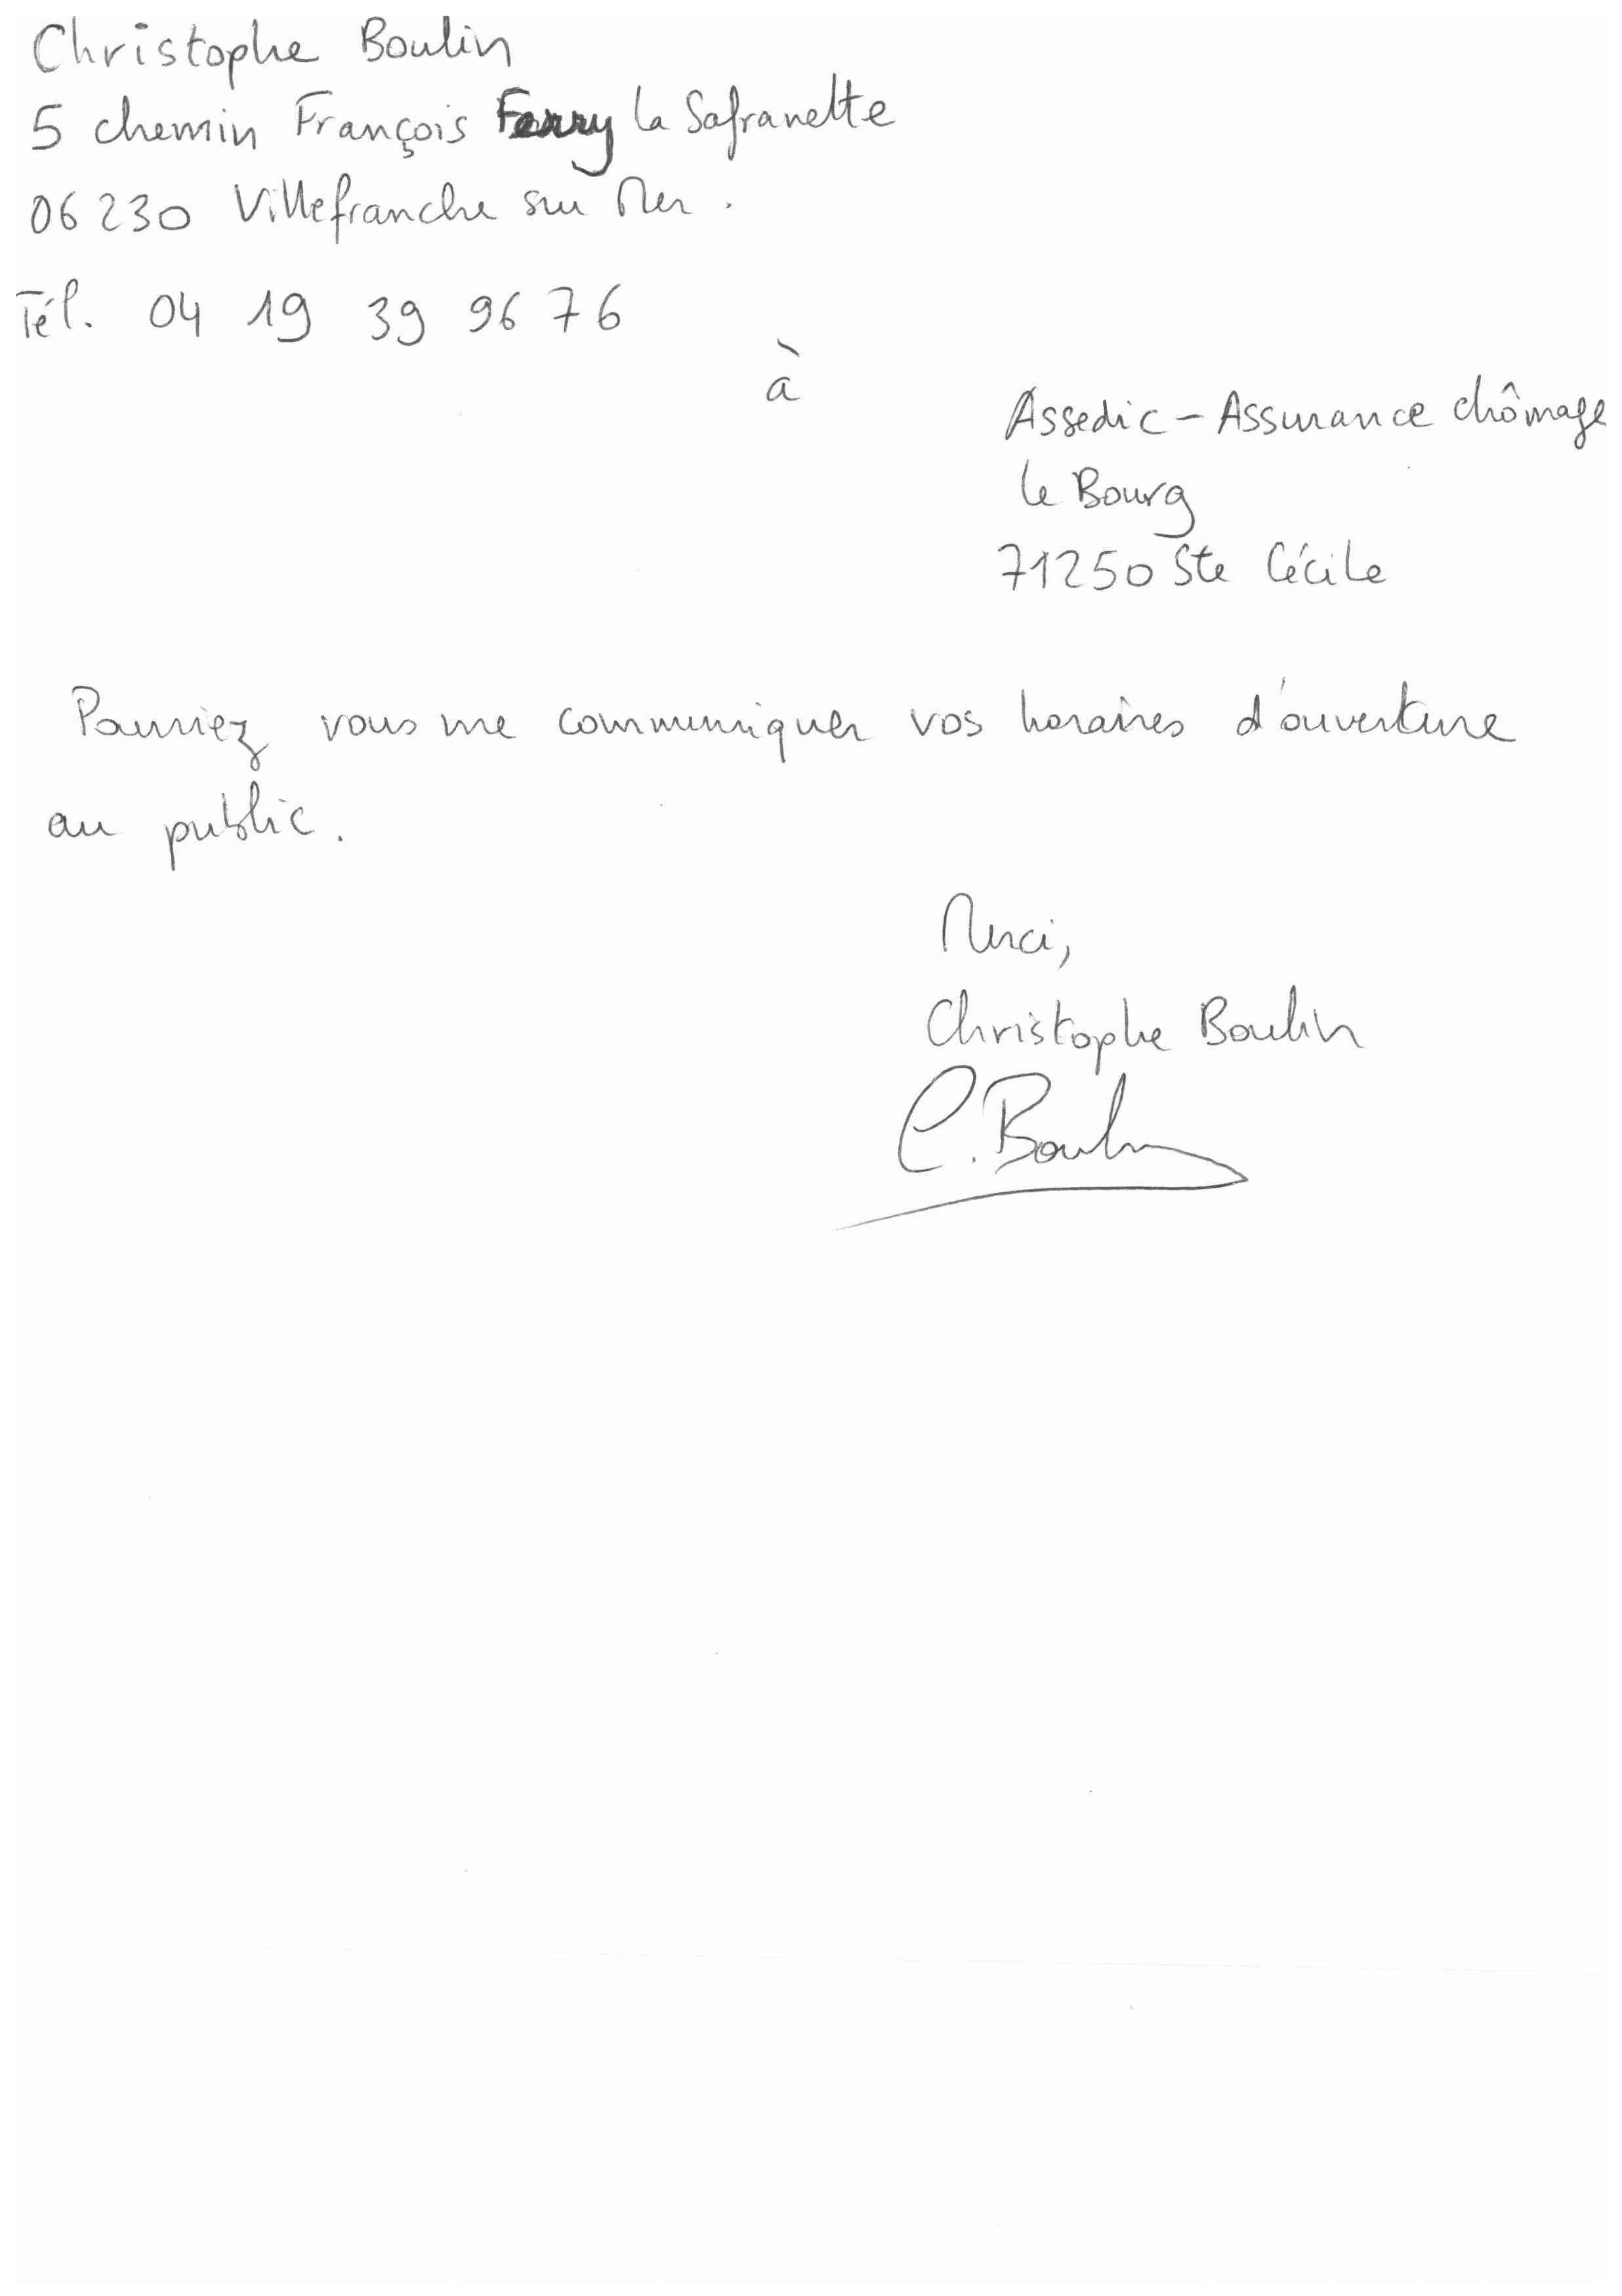 Christophe Boulin
5 chemin François Ferry la Safranette
06230 Villefranche sur Mer.
Tél. 04 19 39 96 76
à
Assedic - Assurance chômage
le Bourg
71250 Ste Cécile
Pourriez vous me communiquer vos horaires d'ouverture
au public.
Merci,
Christophe Boulin
C. Boulin